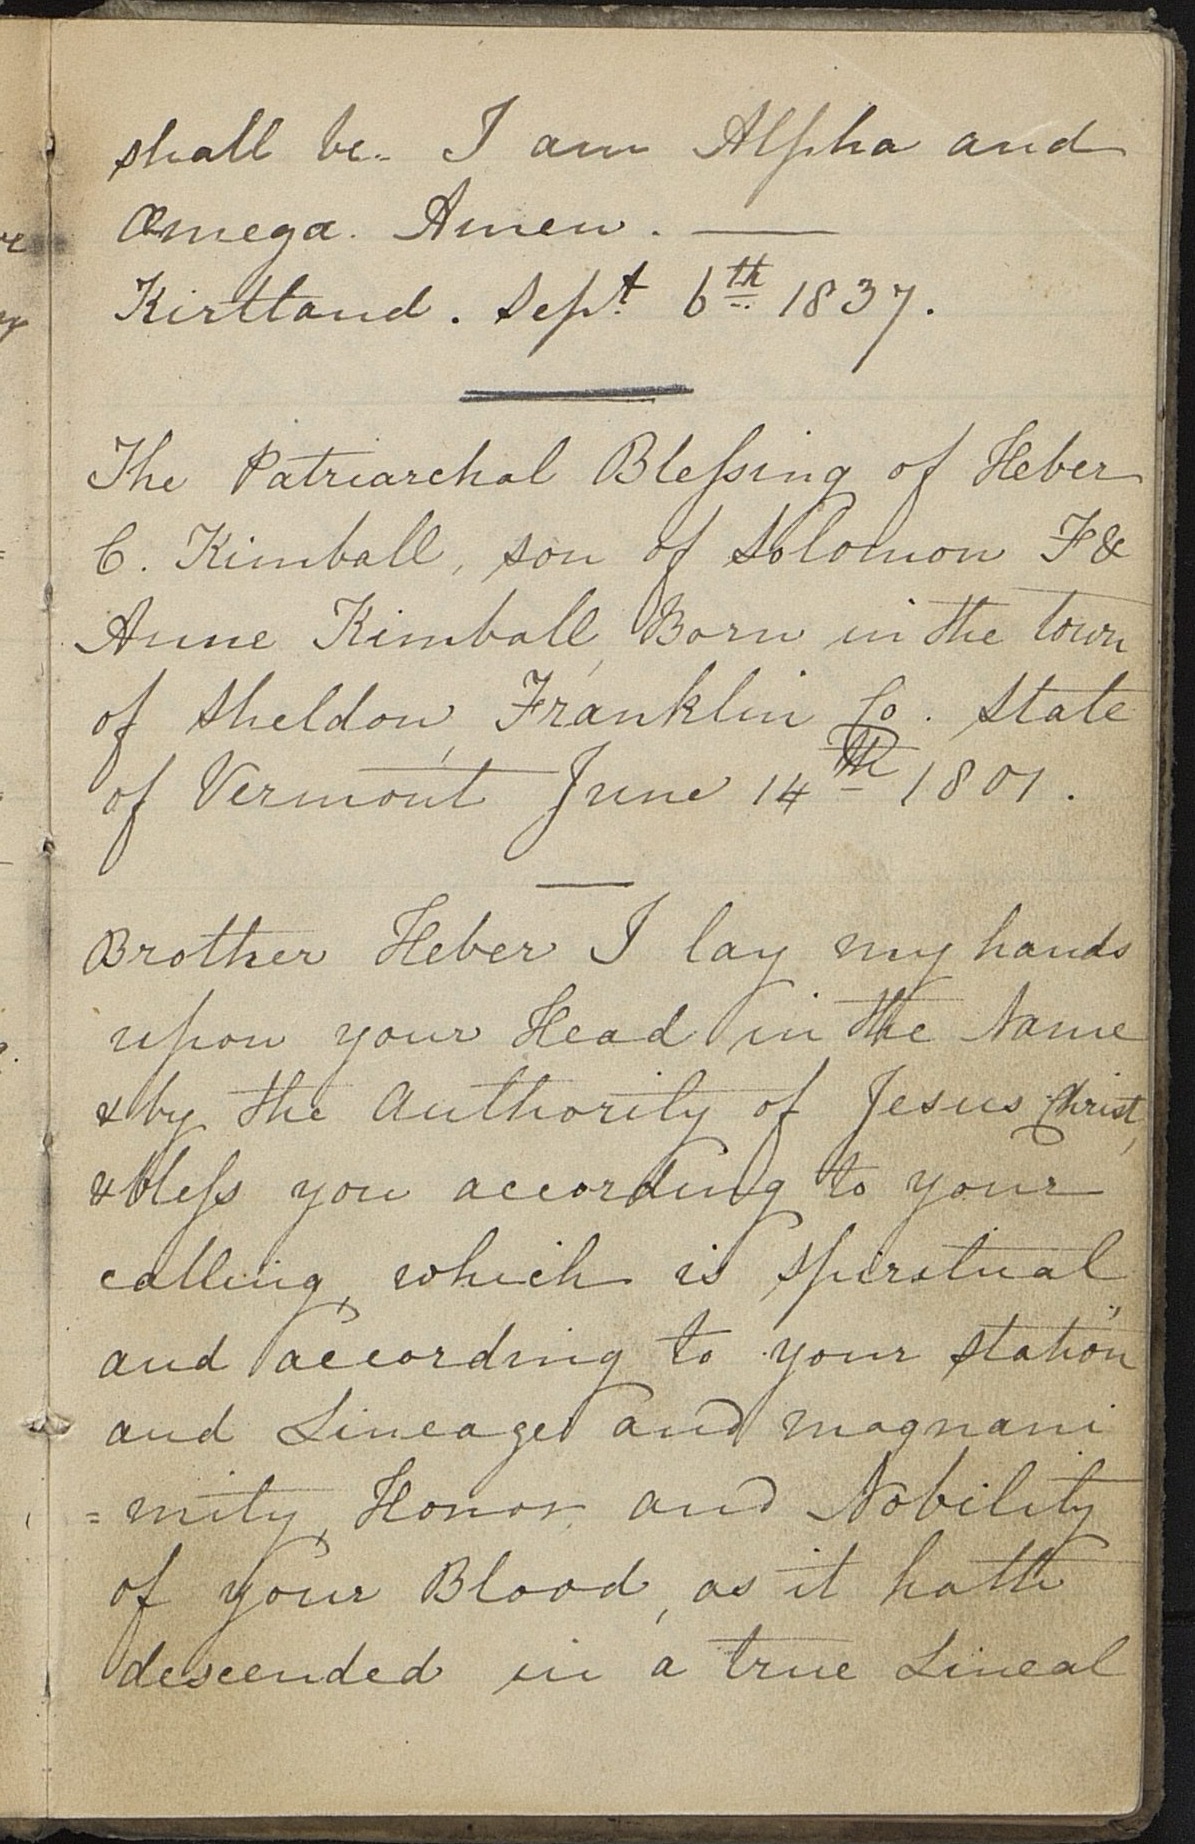 shall be. I am Alpha and
Omega. Amen. —
Kirtland. Sept. 6th 1837.
The Patriarchal Blessing of Heber
C. Kimball, son of Solomon F &
Anne Kimball, Born in the town
of Sheldon, Franklin Co. State
of Vermont June 14th 1801.
Brother Heber I lay my hands
upon your Head in the Name
& by the Authority of Jesus Christ,
& bless you according to your
calling, which is spiritual,
and according to your station
and Lineage and magnani
=mity, Honor and Nobility
of your Blood, as it hath
descended in a true Lineal